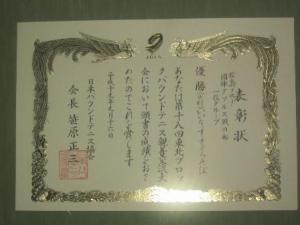 表彰状
優勝
あなたは第十八回東北ブロッ
クバウンドテニス親善交流大
会において頭書の成績をおさ
めたのでこれを賞します
平成十九年九月十六日
日本バウンドテニス協会
会長 笹原正三